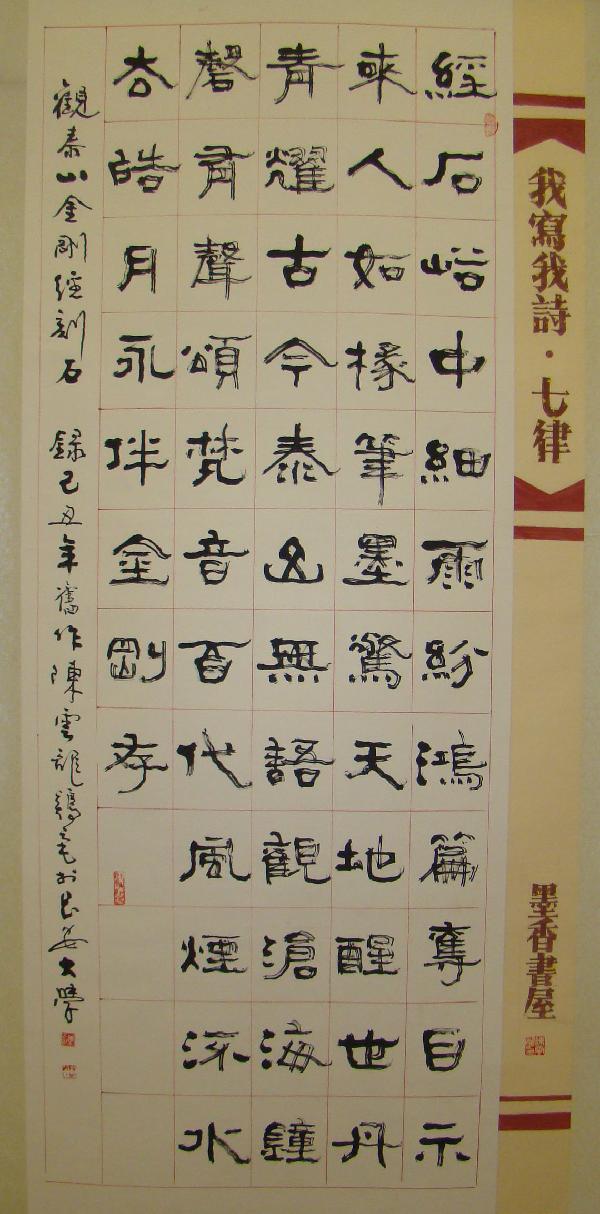 我寫我詩·七律
墨香書屋
經石峪中細雨紛鴻篇奪目示
來人如椽筆墨驚天地醒世丹
青耀古今泰山無語觀滄海鐘
磬有聲頌梵音百代風煙流水
去皓月永伴金剛存
觀泰山金剛經刻石 錄己丑年舊作陳雲龍鷄毫於長安大學